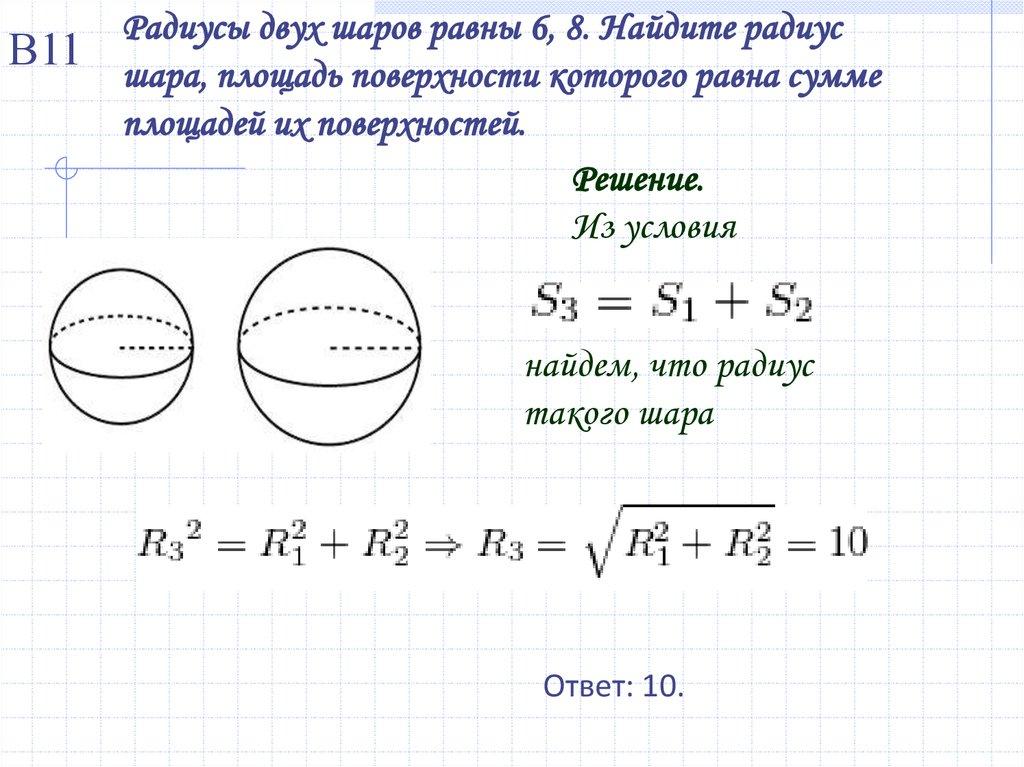 B11
Радиусы двух шаров равны 6, 8. Найдите радиус
шара, площадь поверхности которого равна сумме
площадей их поверхностей.
Решение.
Из условия
S₃ = S₁ + S₂
найдем, что радиус
такого шара
R₃² = R₁² + R₂² ⇒ R₃ = √(R₁² + R₂²) = 10
Ответ: 10.